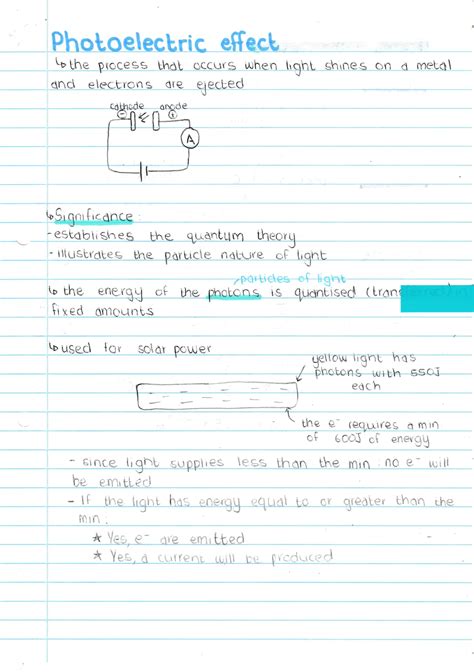 Photoelectric effect
↳the process that occurs when light shines on a metal
and electrons are ejected
cathode anode
⊖ ⊕
A
↳Significance:
-establishes the quantum theory
-illustrates the particle nature of light
particles of light
↳ the energy of the photons is quantised (tran
fixed amounts
↳used for solar power
yellow light has
photons with 550J
each
the e⁻ requires a min
of 600J of energy
- since light supplies less than the min no e⁻ will
be emitted
- If the light has energy equal to or greater than the
min.
* Yes, e⁻ are emitted
* Yes, a current will be produced